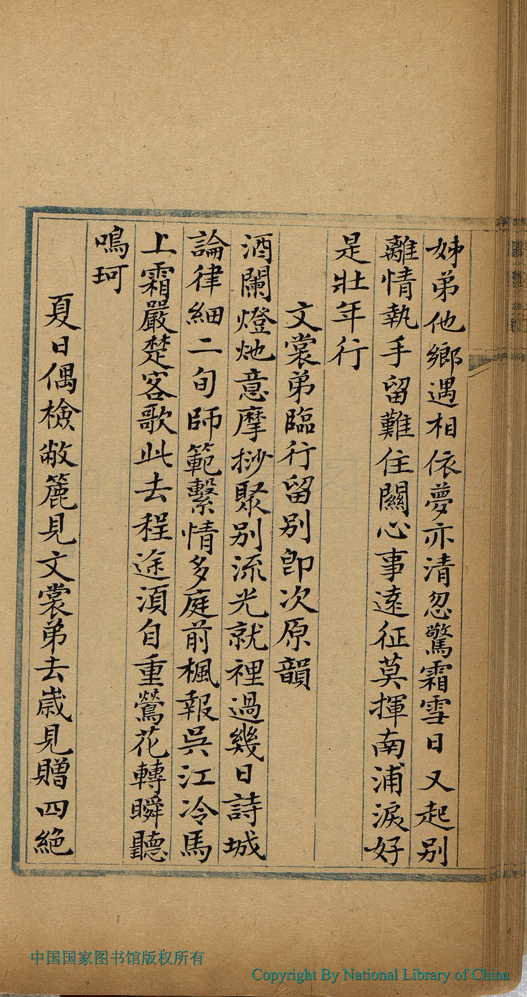 姊弟他鄉遇相依夢亦清忽驚霜雪日又起別
離情執手留難住關心事遠征莫揮南浦淚好
是壯年行
文裳弟臨行留別卽次原韻
酒闌燈灺意摩挱聚別流光就裡過幾日詩城
論律細二旬師範繫情多庭前楓報吳江冷馬
上霜嚴楚客歌此去程途湏自重鶯花轉瞬聽
鳴珂
夏日偶檢敝簏見文裳弟去嵗見贈四絕
中国国家图书馆版权所有
Copyright By National Library of China